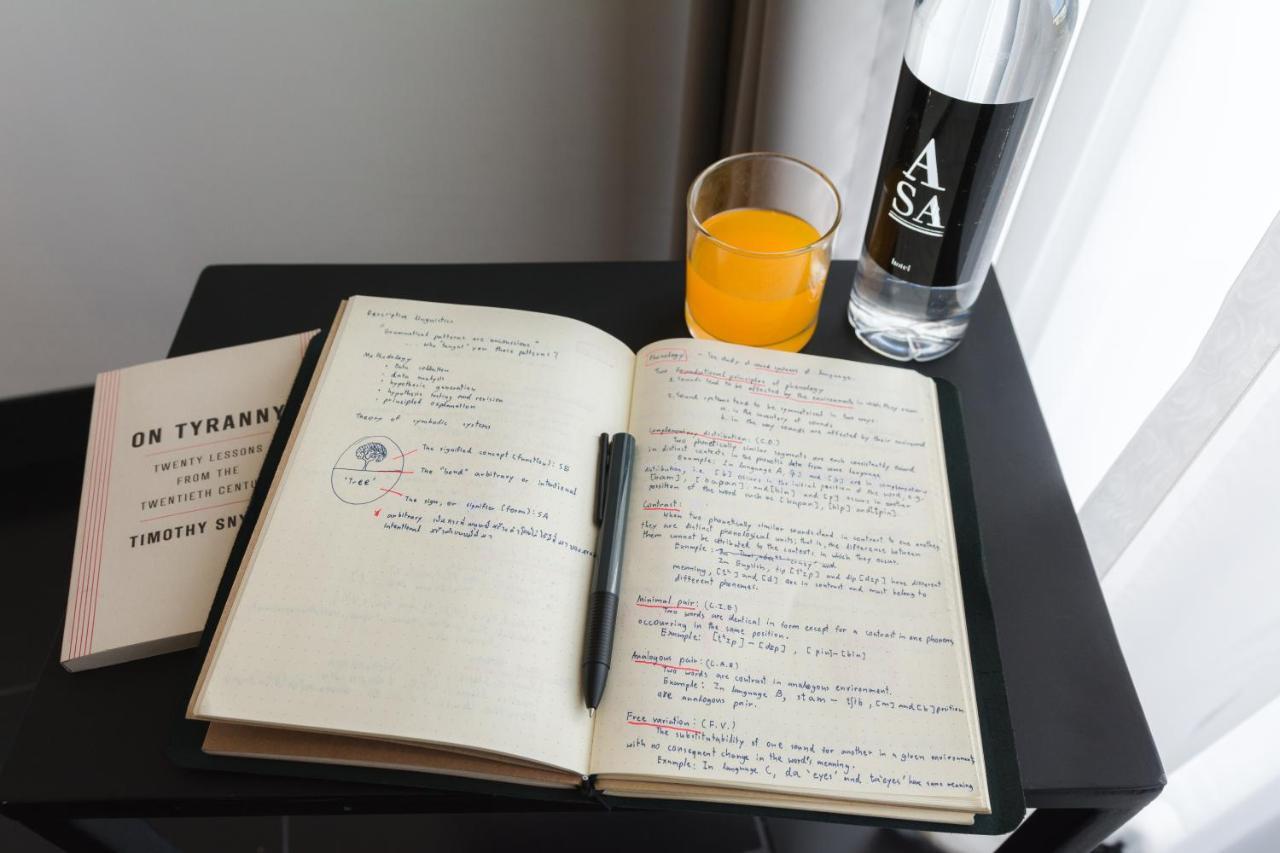 ON TYRANNY
TWENTY LESSONS
FROM THE
TWENTIETH CENTU
TIMOTHY SNY
Descriptive linguistics
"Grammatical patterns are unconscious."
... Who "taught" you these patterns?
Methodology
• Data collection
• data analysis
• hypothesis generation
• hypothesis testing and revision
• principled explanation
Theory of symbolic systems
The signified concept (function): SB
The "bond" arbitrary or intentional
'Tree'
The sign, or signifier (form): SA
* arbitrary
intentional
Phonology - The study of sound systems of language.
Two foundational principles of phonology
1. sounds tend to be affected by the environments in which they occur.
2. Sound systems tend to be symmetrical in two ways:
a. in the inventory of sounds
b. in the way sounds are affected by their environment
Complementary distribution: (C.D.)
Two phonetically similar segments are each consistently found
in distinct contexts in the phonetic data from some language.
Example: In language A, and are in complementary
distribution, i.e. [b] occurs in the initial position of the word, e.g.
and [bin] and [p] occurs in another
position of the word such as and [ipin].
Contrast:
When two phonetically similar sounds stand in contrast to one another
they are distinct phonological units; that is, the difference between
them cannot be attributed to the contexts in which they occur.
Example:
In English, tip [tʰɪp] and dip [dɪp] have different
meaning, [tʰ] and [d] are in contrast and must belong to
different phonemes.
Minimal pair: (C.I.E)
Two words are identical in form except for a contrast in one phoneme
occourring in the same position.
Example: [tʰɪp] - [dɪp] , [pin]-[bin]
Analogous pair: (C.A.E)
Two words are contrast in analogous environment.
Example: In language B, stam - , [m] and [b] position
are analogous pair.
Free variation: (F.V.)
The substitutability of one sound for another in a given environment
with no consequent change in the word's meaning.
Example: In language C, da 'eyes' and ta 'eyes' have same meaning
A
SA
hotel